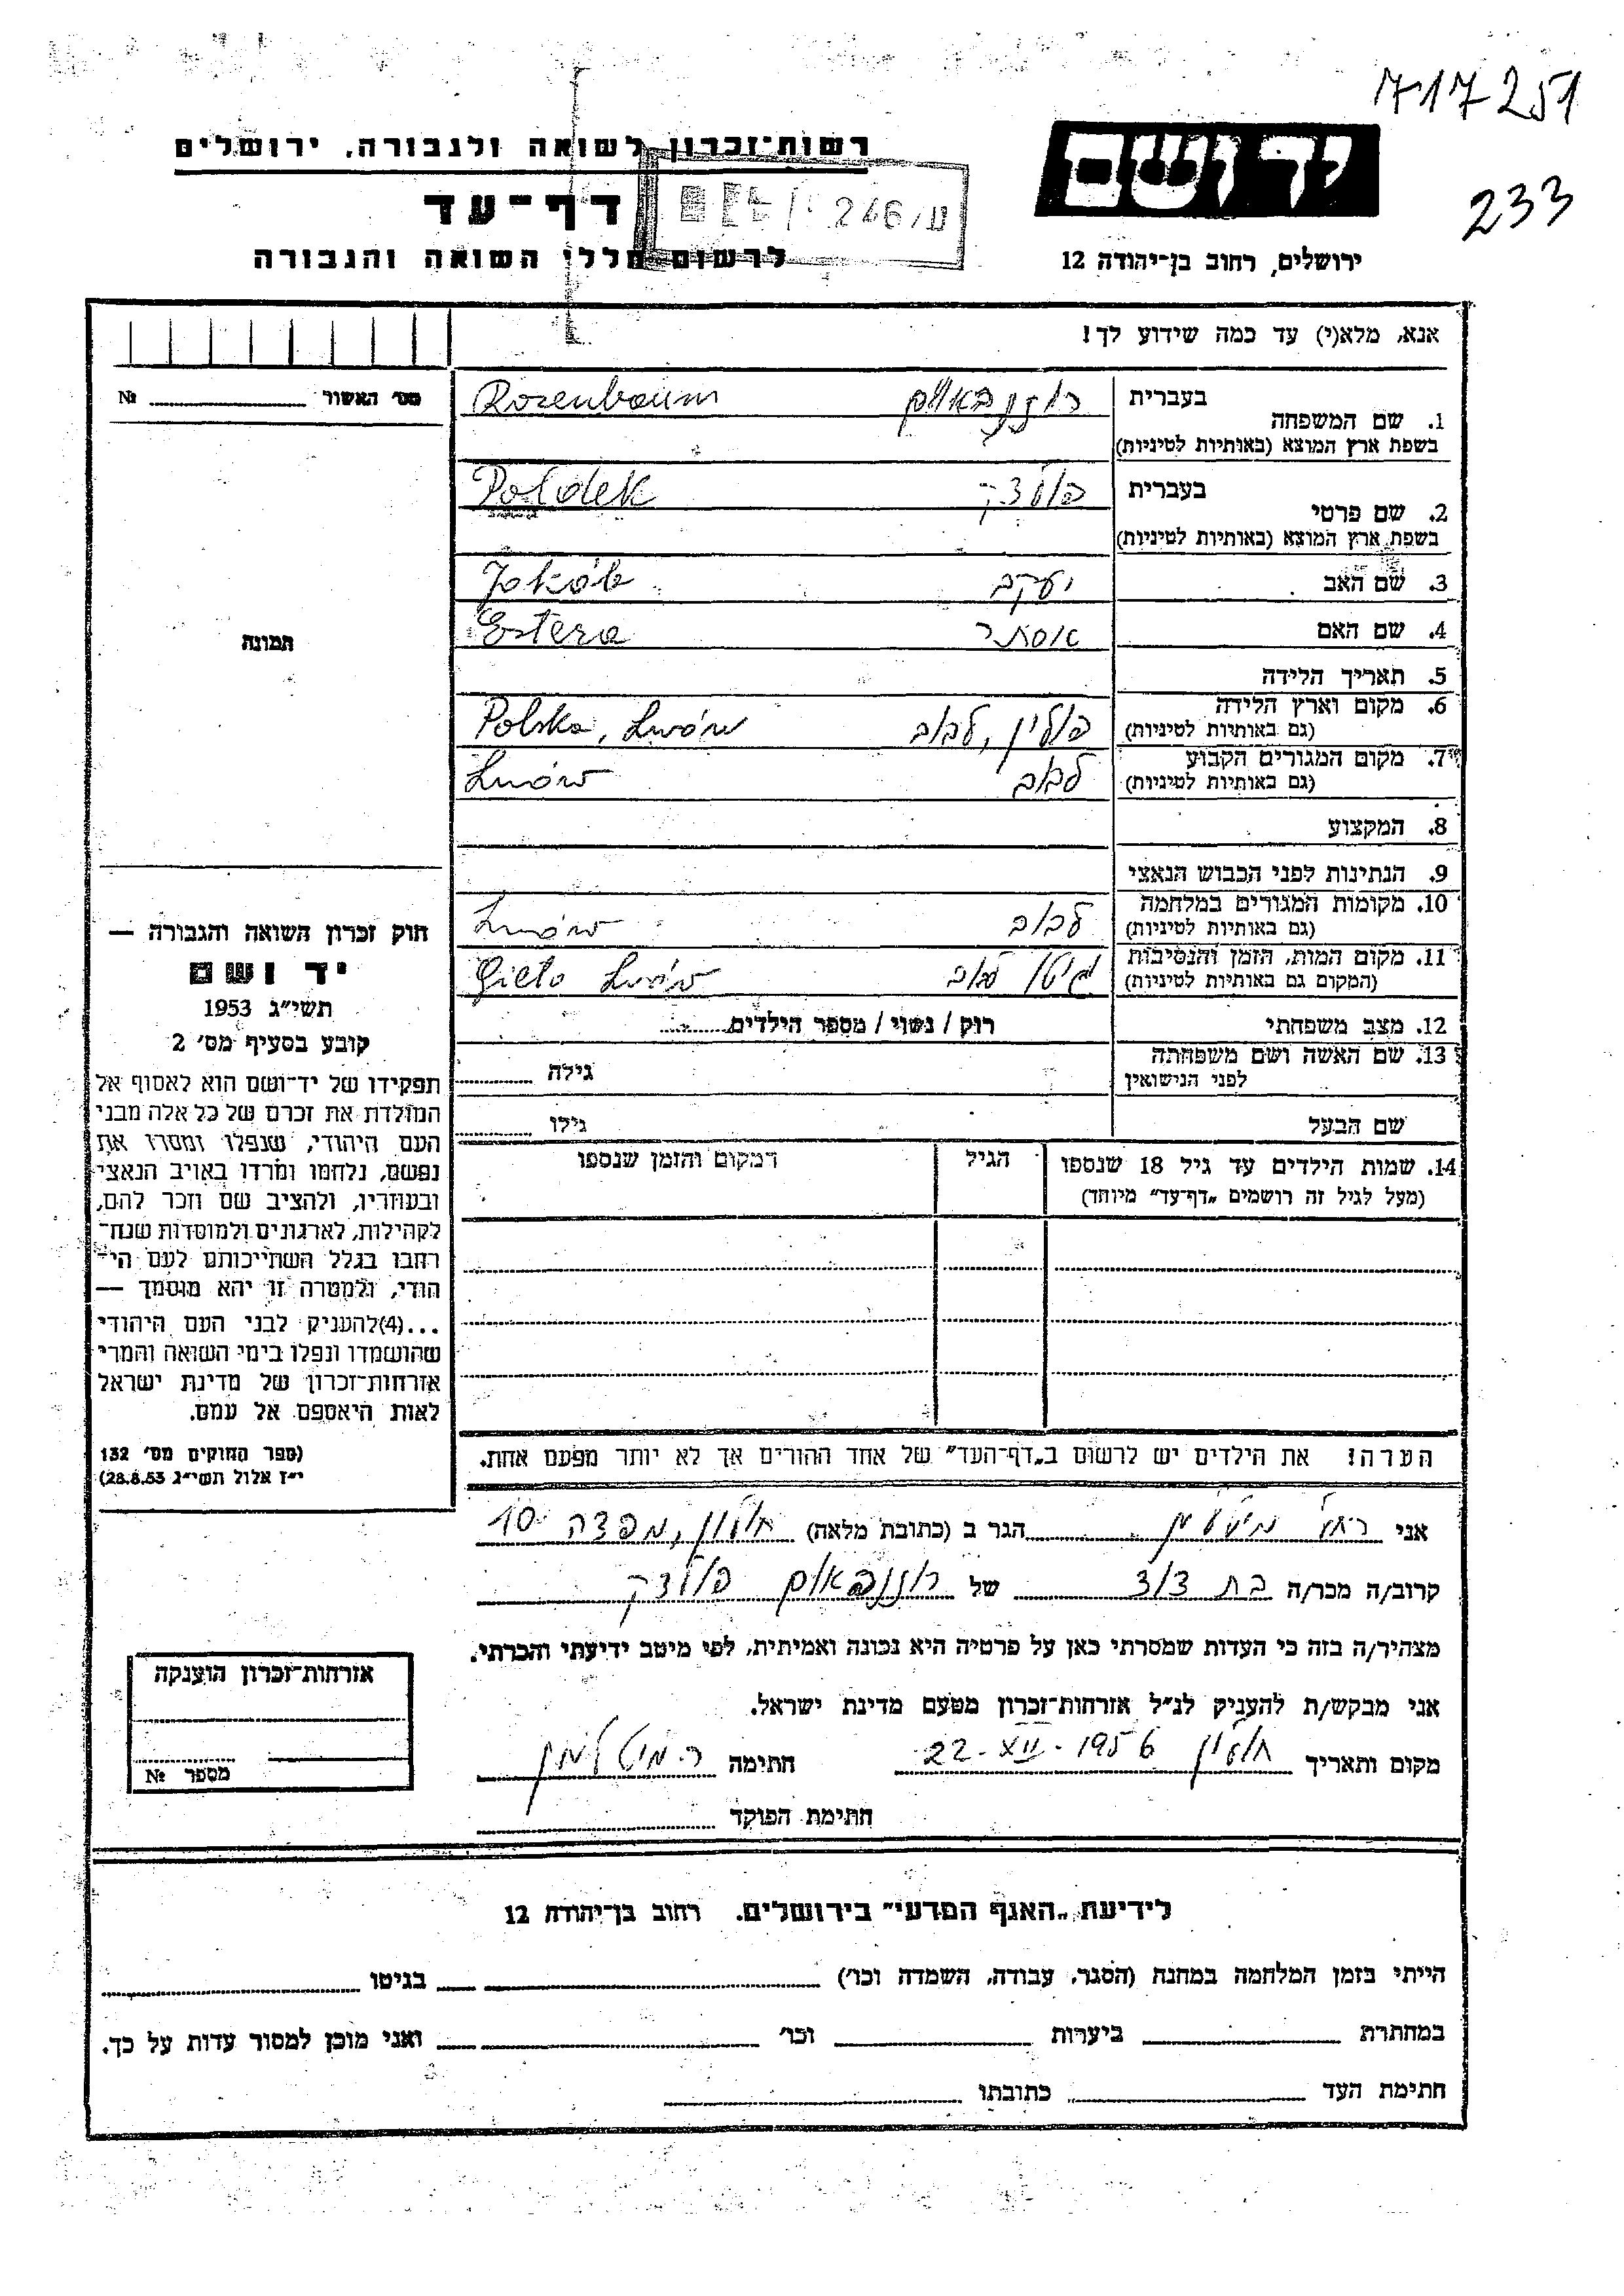 717251
233
יד ושם
ירושלים, רחוב בן־יהודה 12
רשות־זכרון לשואה ולגבורה, ירושלים
דף־עד
לרשום חללי השואה והגבורה
246/ע
אנא, מלא(י) עד כמה שידוע לך!
מס׳ האשור № 
תמונה
בעברית
1. שם המשפחה
בשפת ארץ המוצא (באותיות לטיניות)
רוזנבאום Rozenbaum
בעברית
2. שם פרטי
בשפת ארץ המוצא (באותיות לטיניות)
פולדק Poldek
3. שם האב יעקב Jakób
4. שם האם אסתר Estera
5. תאריך הלידה
6. מקום וארץ הלידה
(גם באותיות לטיניות)
פולין, לבוב Polska, Lwów
7. מקום המגורים הקבוע
(גם באותיות לטיניות)
לבוב Lwów
8. המקצוע
9. הנתינות לפני הכבוש הנאצי
10. מקומות המגורים במלחמה
(גם באותיות לטיניות)
לבוב Lwów
11. מקום המות, הזמן והנסיבות
(המקום גם באותיות לטיניות)
גיטו לבוב Gieto Lwów
12. מצב משפחתי רוק / נשוי / מספר הילדים
13. שם האשה ושם משפחתה
לפני הנישואין
גילה
שם הבעל גילו
14. שמות הילדים עד גיל 18 שנספו
(מעל לגיל זה רושמים „דף־עד״ מיוחד)
הגיל
המקום והזמן שנספו
הערה! את הילדים יש לרשום ב„דף־העד״ של אחד ההורים אך לא יותר מפעם אחת.
חוק זכרון השואה והגבורה —
יד ושם
תשי״ג 1953
קובע בסעיף מס׳ 2
תפקידו של יד־ושם הוא לאסוף אל
המולדת את זכרם של כל אלה מבני
העם היהודי, שנפלו ומסרו את
נפשם, נלחמו ומרדו באויב הנאצי
ובעוזריו, ולהציב שם וזכר להם,
לקהילות, לארגונים ולמוסדות שנח־
רבו בגלל השתייכותם לעם הי־
הודי, ולמטרה זו יהא מוסמך —
...(4)להעניק לבני העם היהודי
שהושמדו ונפלו בימי השואה והמרי
אזרחות־זכרון של מדינת ישראל
לאות היאספם אל עמם.
(ספר החוקים מס׳ 132
י״ז אלול תשי״ג 28.8.53)
אני רחל הגר ב (כתובת מלאה) חולון, מפדה 10
קרוב/ה מכר/ה בת דוד של רוזנבאום פולדק
מצהיר/ה בזה כי העדות שמסרתי כאן על פרטיה היא נכונה ואמיתית, לפי מיטב ידיעתי והכרתי.
אני מבקש/ת להעניק לנ״ל אזרחות־זכרון מטעם מדינת ישראל.
מקום ותאריך חולון 22-XII-1956 חתימה
חתימת הפוקד
אזרחות־זכרון הוענקה
מספר №
לידיעת „האגף המדעי״ בירושלים. רחוב בן־יהודה 12
הייתי בזמן המלחמה במחנה (הסגר, עבודה, השמדה וכו׳) בגיטו
במחתרת ביערות וכו׳ ואני מוכן למסור עדות על כך.
חתימת העד כתובתו